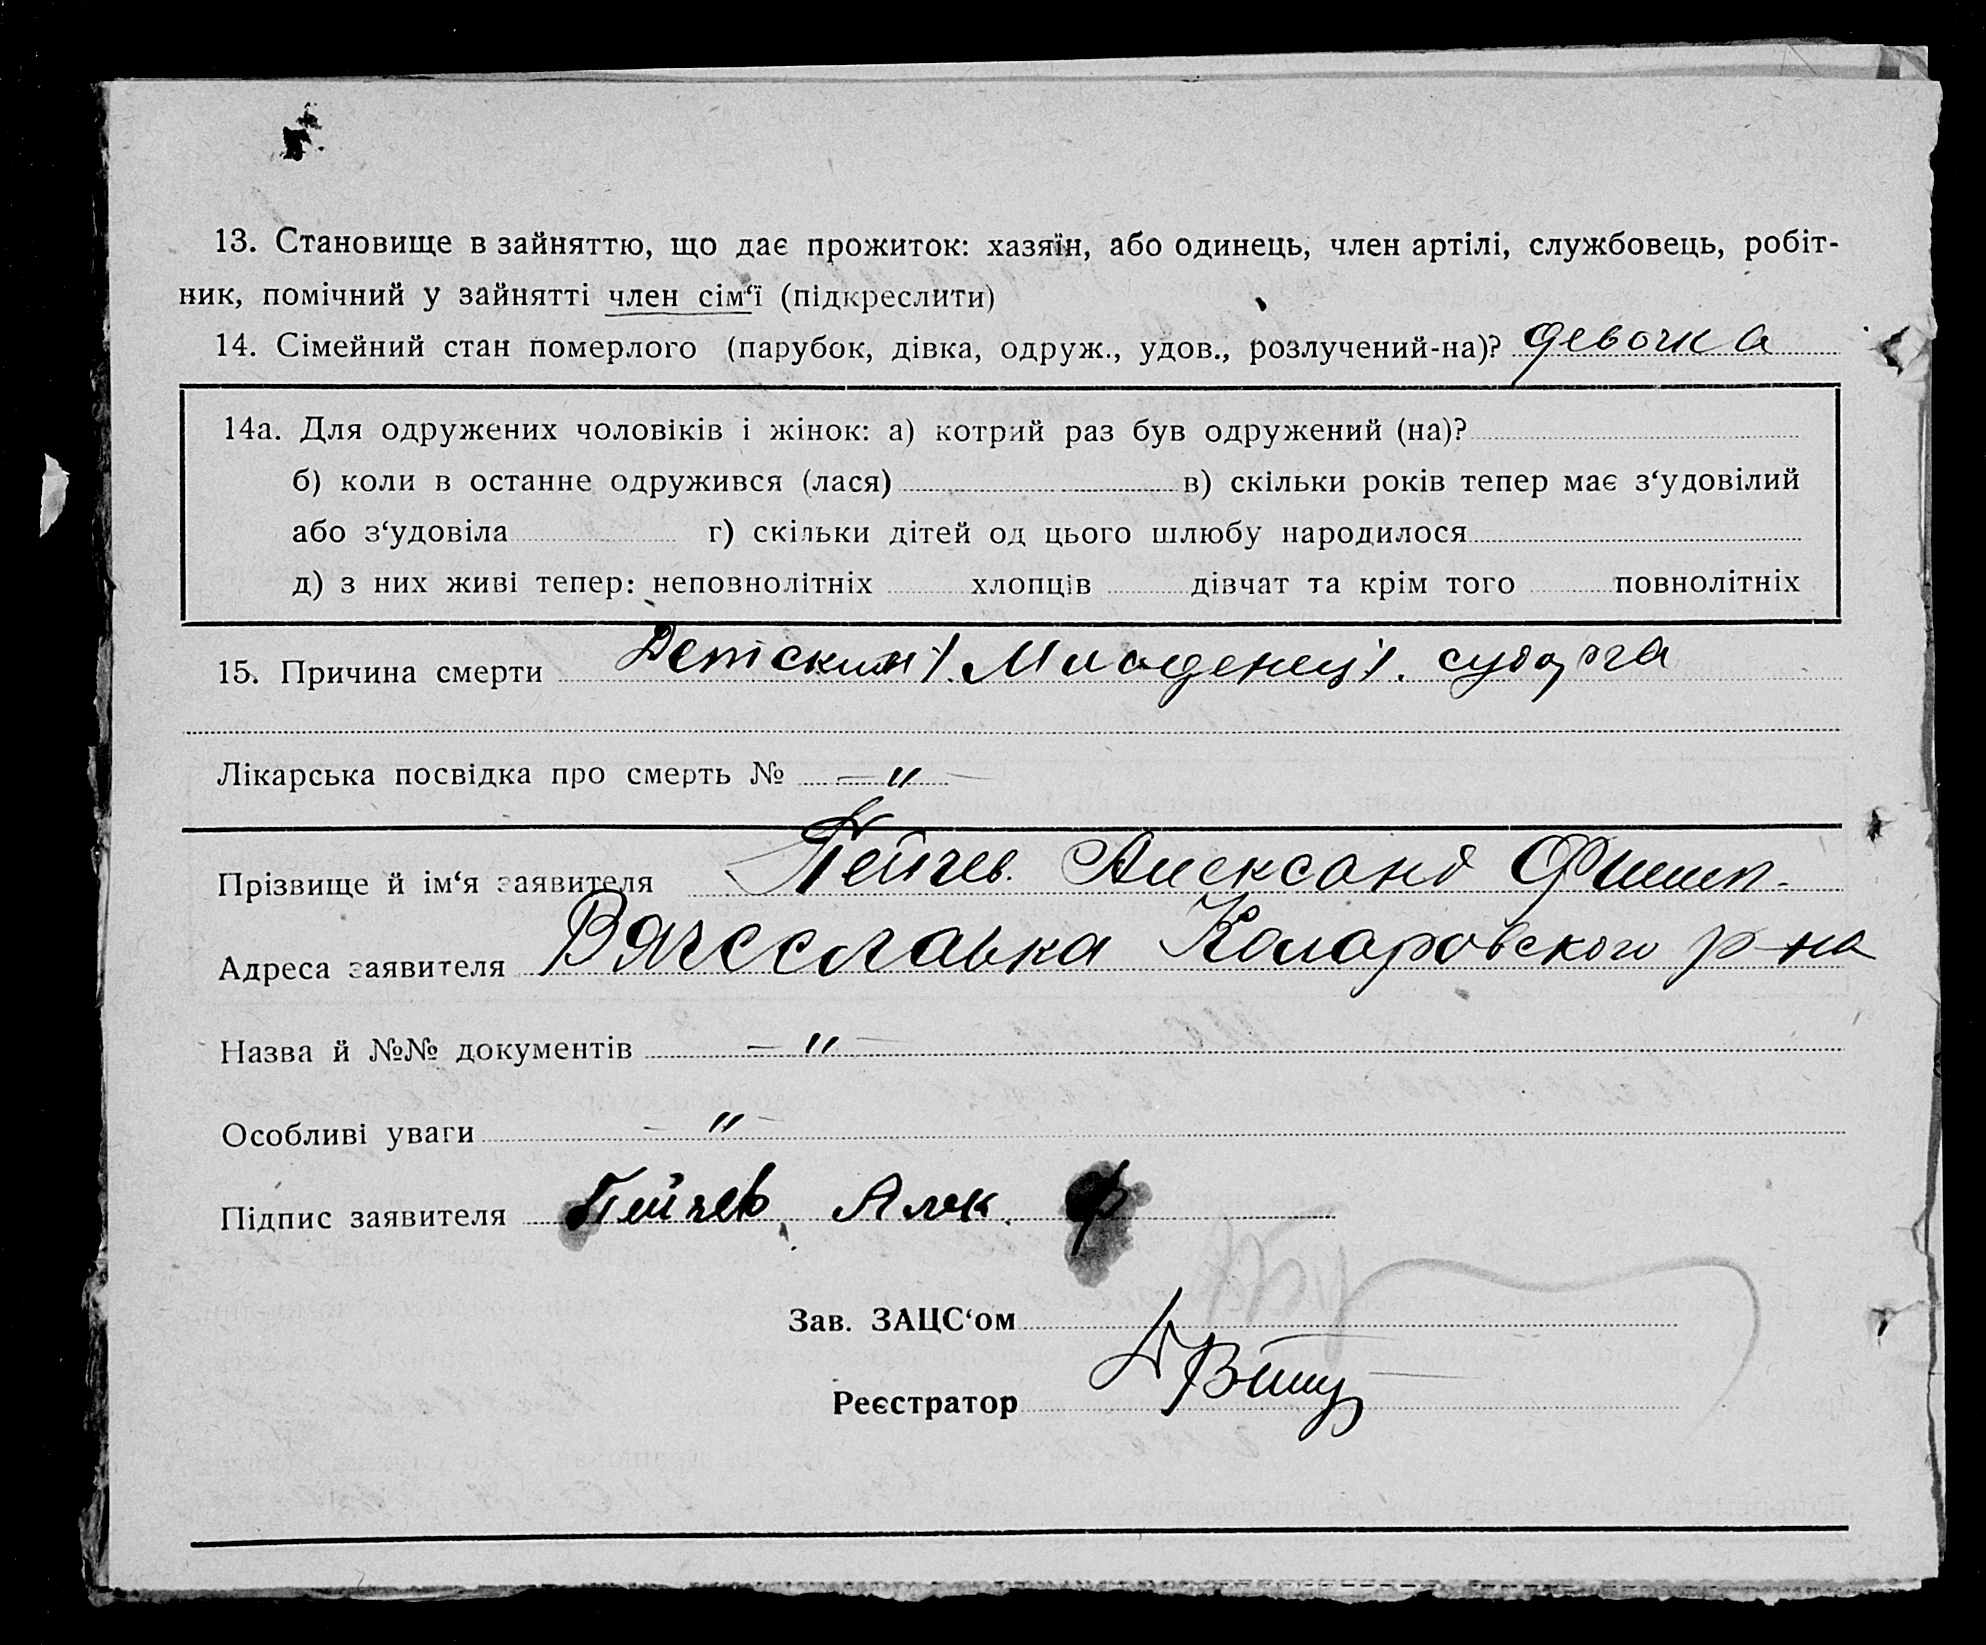 13. Становище в зайняттю, що дає прожиток: хазяїн, або одинець, член артілі, службовець, робіт-
ник, помічний у зайнятті член сім‘ї (підкреслити)
14. Сімейний стан померлого (парубок, дівка, одруж., удов., розлучений-на)? девочка
14а. Для одружених чоловіків і жінок: а) котрий раз був одружений (на)?
б) коли в останне одружився (лася) в) скільки років тепер має з‘удовілий
або з‘удовіла г) скільки дітей од цього шлюбу народилося
д) з них живі тепер: неповнолітніх хлопців дівчат та крім того повнолітніх
15. Причина смерти Детский Младенец. судорга
Лікарська посвідка про смерть № — " —
Прізвище й ім‘я заявителя Пейчев. Александ Филип.
Адреса заявителя Вячеславка Коларовского р-на
Назва й №№ документів — " —
Особливі уваги — " —
Підпис заявителя Пейчев Алек. Ф
Зав. ЗАЦС‘ом
Реєстратор